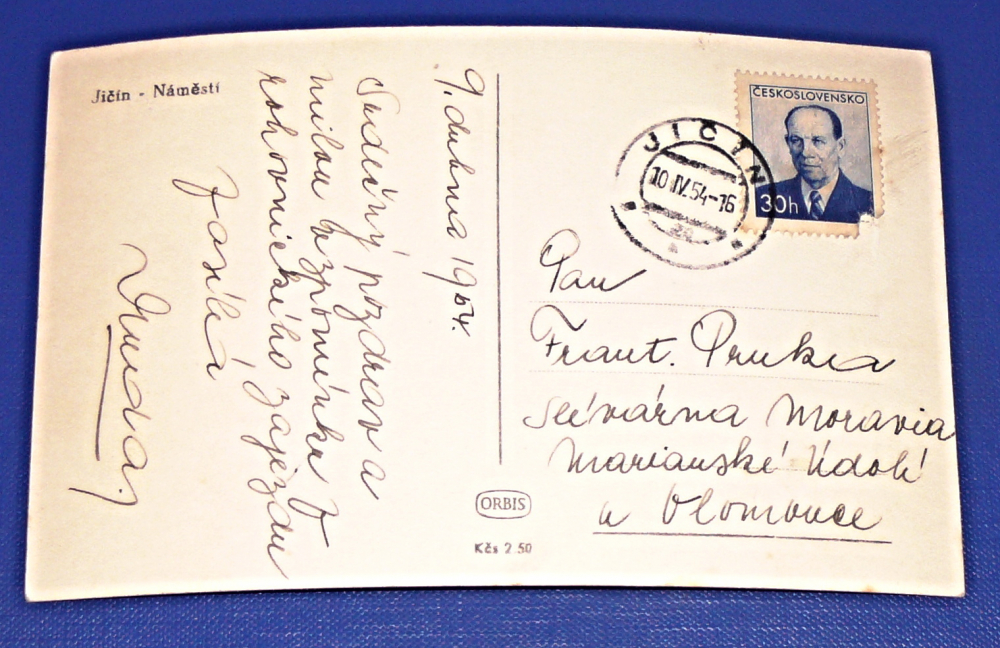 Jičín - Náměstí
9. dubna 1954.
Srdečný pozdrav a
milou vzpomínku z
rohovnického zájezdu
zasílá
ČESKOSLOVENSKO
30h
JIČÍN
10.IV.54-16
Pan
Frant. Prukla
slévárna Moravia
Marianské Údolí
u Olomouce
ORBIS
Kčs 2.50